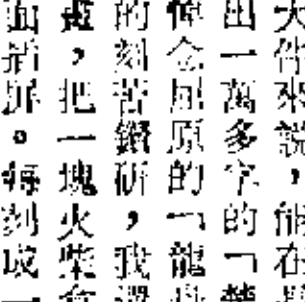 大來說，能在
出一萬多字的「
悼念屈原的「龍
的刻苦鑽研，我還
，把一塊火柴盒
面屏。每刻成一